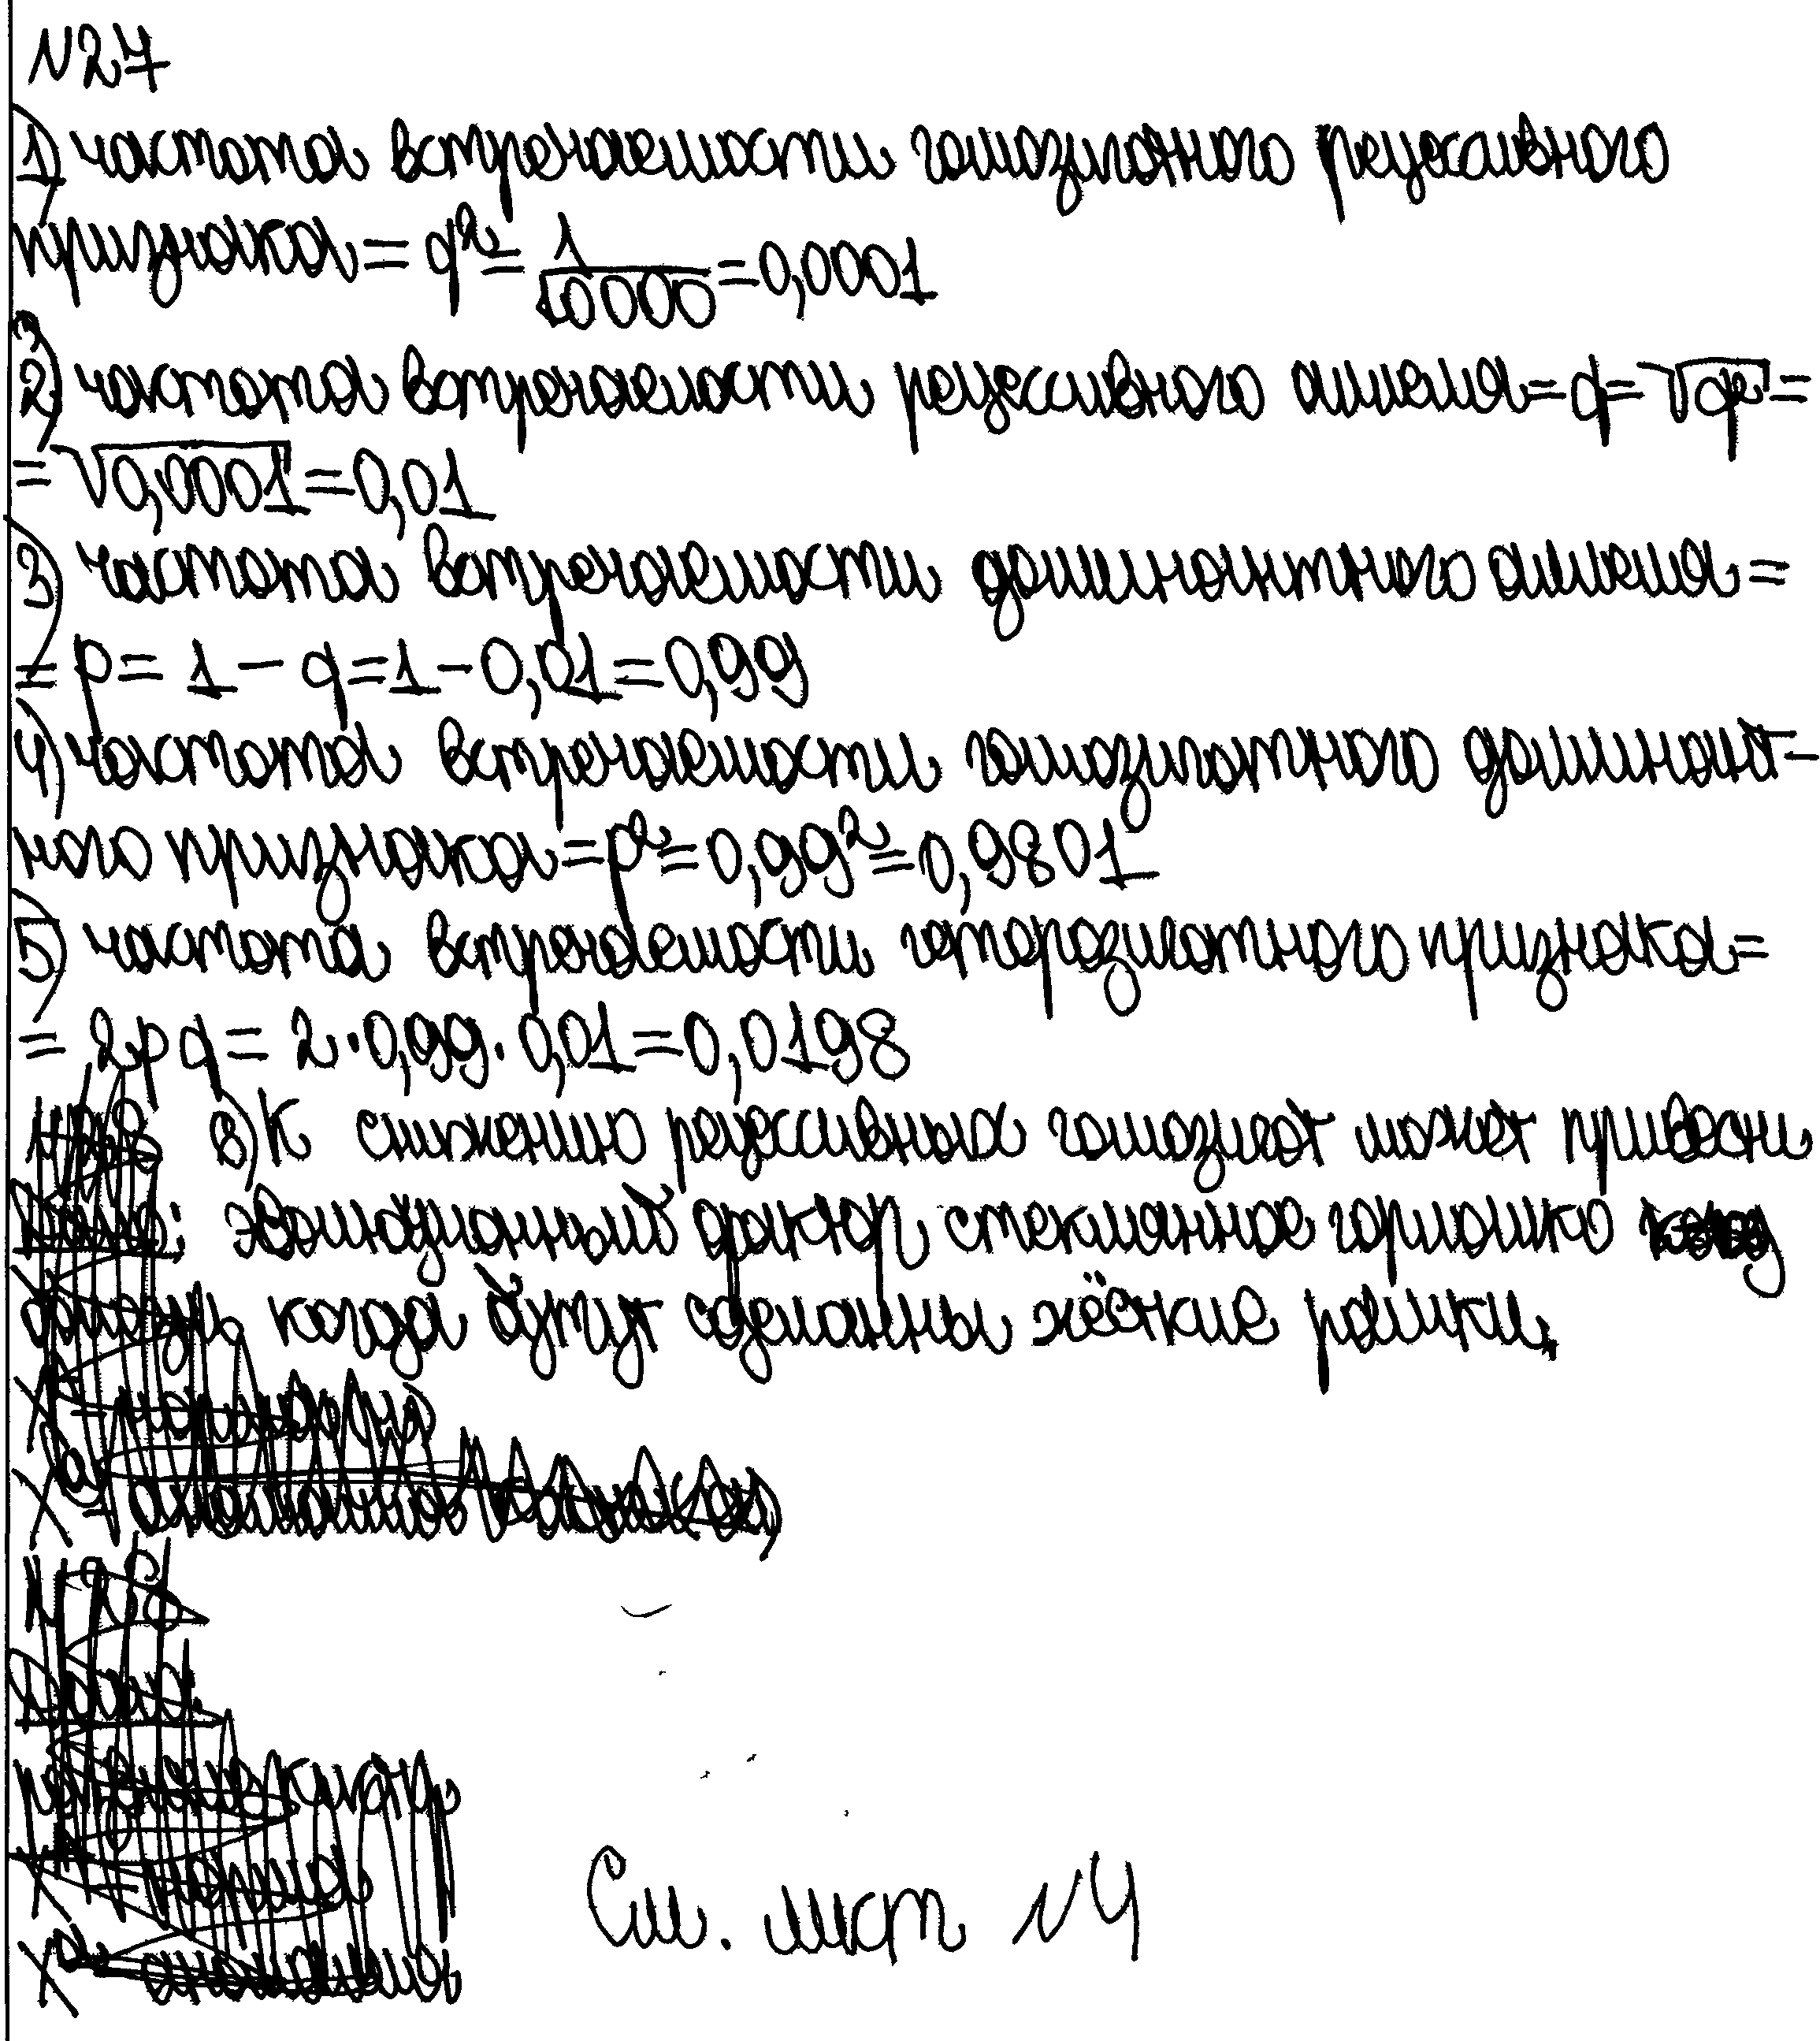 N27
1) частота встречаемости гомозиготного рецессивного
признака = q² = 1/10000 = 0,0001
2) частота встречаемости рецессивного аллеля = q = √q² =
= √0,0001 = 0,01
3) частота встречаемости доминантного аллеля =
= p = 1 - q = 1 - 0,01 = 0,99
4) частота встречаемости гомозиготного доминант-
ного признака = p² = 0,99² = 0,9801
5) частота встречаемости гетерозиготного признака =
= 2pq = 2·0,99·0,01 = 0,0198
8) К снижению рецессивных гомозигот может привести
эволюционный фактор стеклянное горлышко
когда будут сделанны жёсткие рамки.
См. лист N4